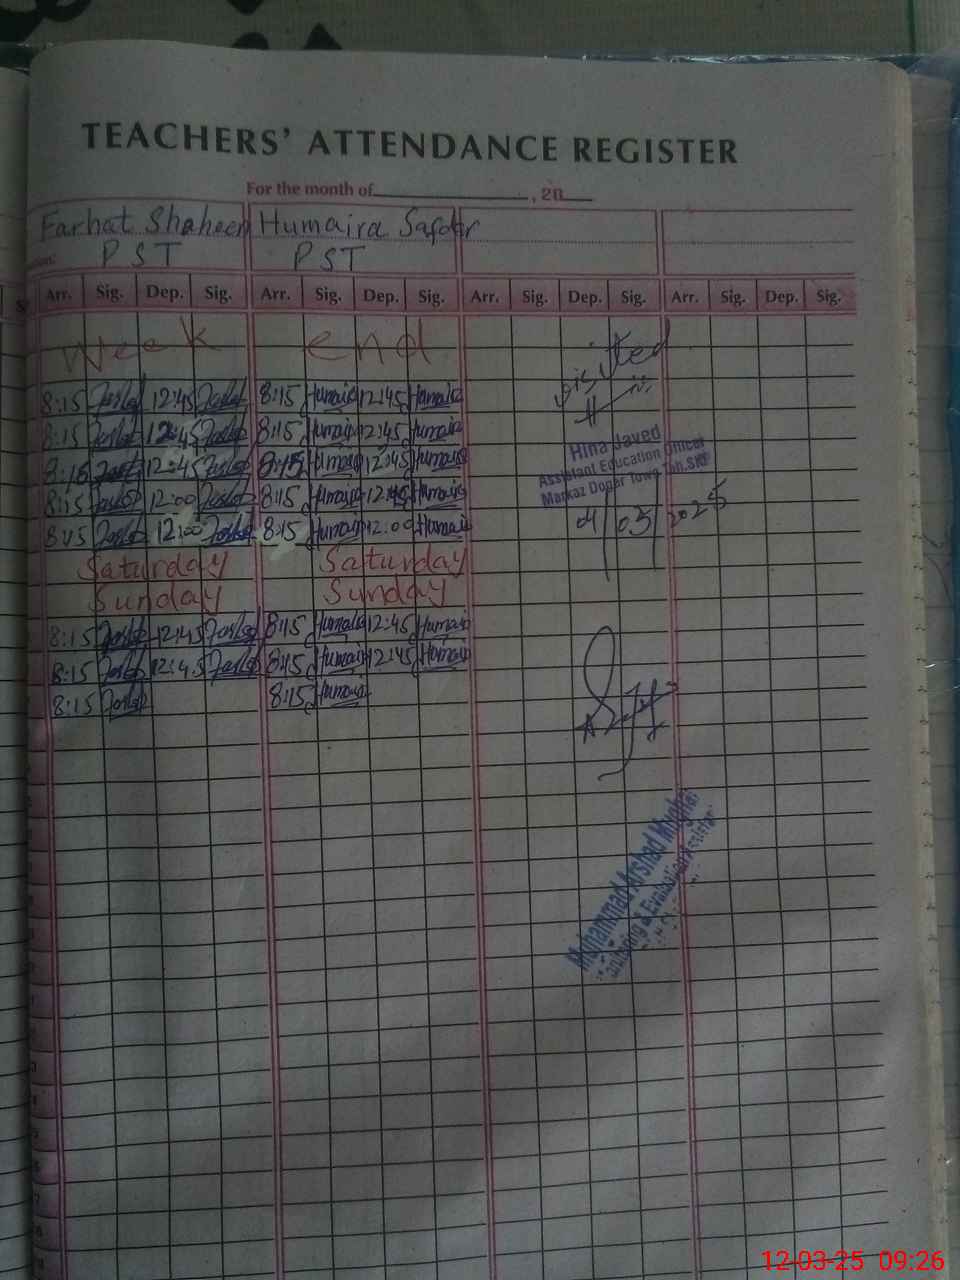 TEACHERS' ATTENDANCE REGISTER
For the month of , 20
Farhat Shaheen Humaira Safdar
PST PST
Arr. Sig. Dep. Sig. Arr. Sig. Dep. Sig. Arr. Sig. Dep. Sig. Arr. Sig. Dep. Sig.
Week end
visited
8:15 12:45 8:15 Humaira 12:45 Humaira
8:15 12:45 8:15 Humaira 12:45 Humaira
8:15 12:45 8:15 Humaira 12:45 Humaira
8:15 12:00 8:15 Humaira 12:45 Humaira
8:15 12:00 8:15 Humaira 12:00 Humaira
Hina Javed
Assistant Education Officer
Markaz Dogar Town Teh.
04/03/2025
Saturday Saturday
Sunday Sunday
8:15 12:45 8:15 Humaira 12:45 Humaira
8:15 12:45 8:15 Humaira 12:45 Humaira
8:15 8:15 Humaira
Muhammad Arshad Mughal
Monitoring & Evaluation Assistant
12-03-25 09:26